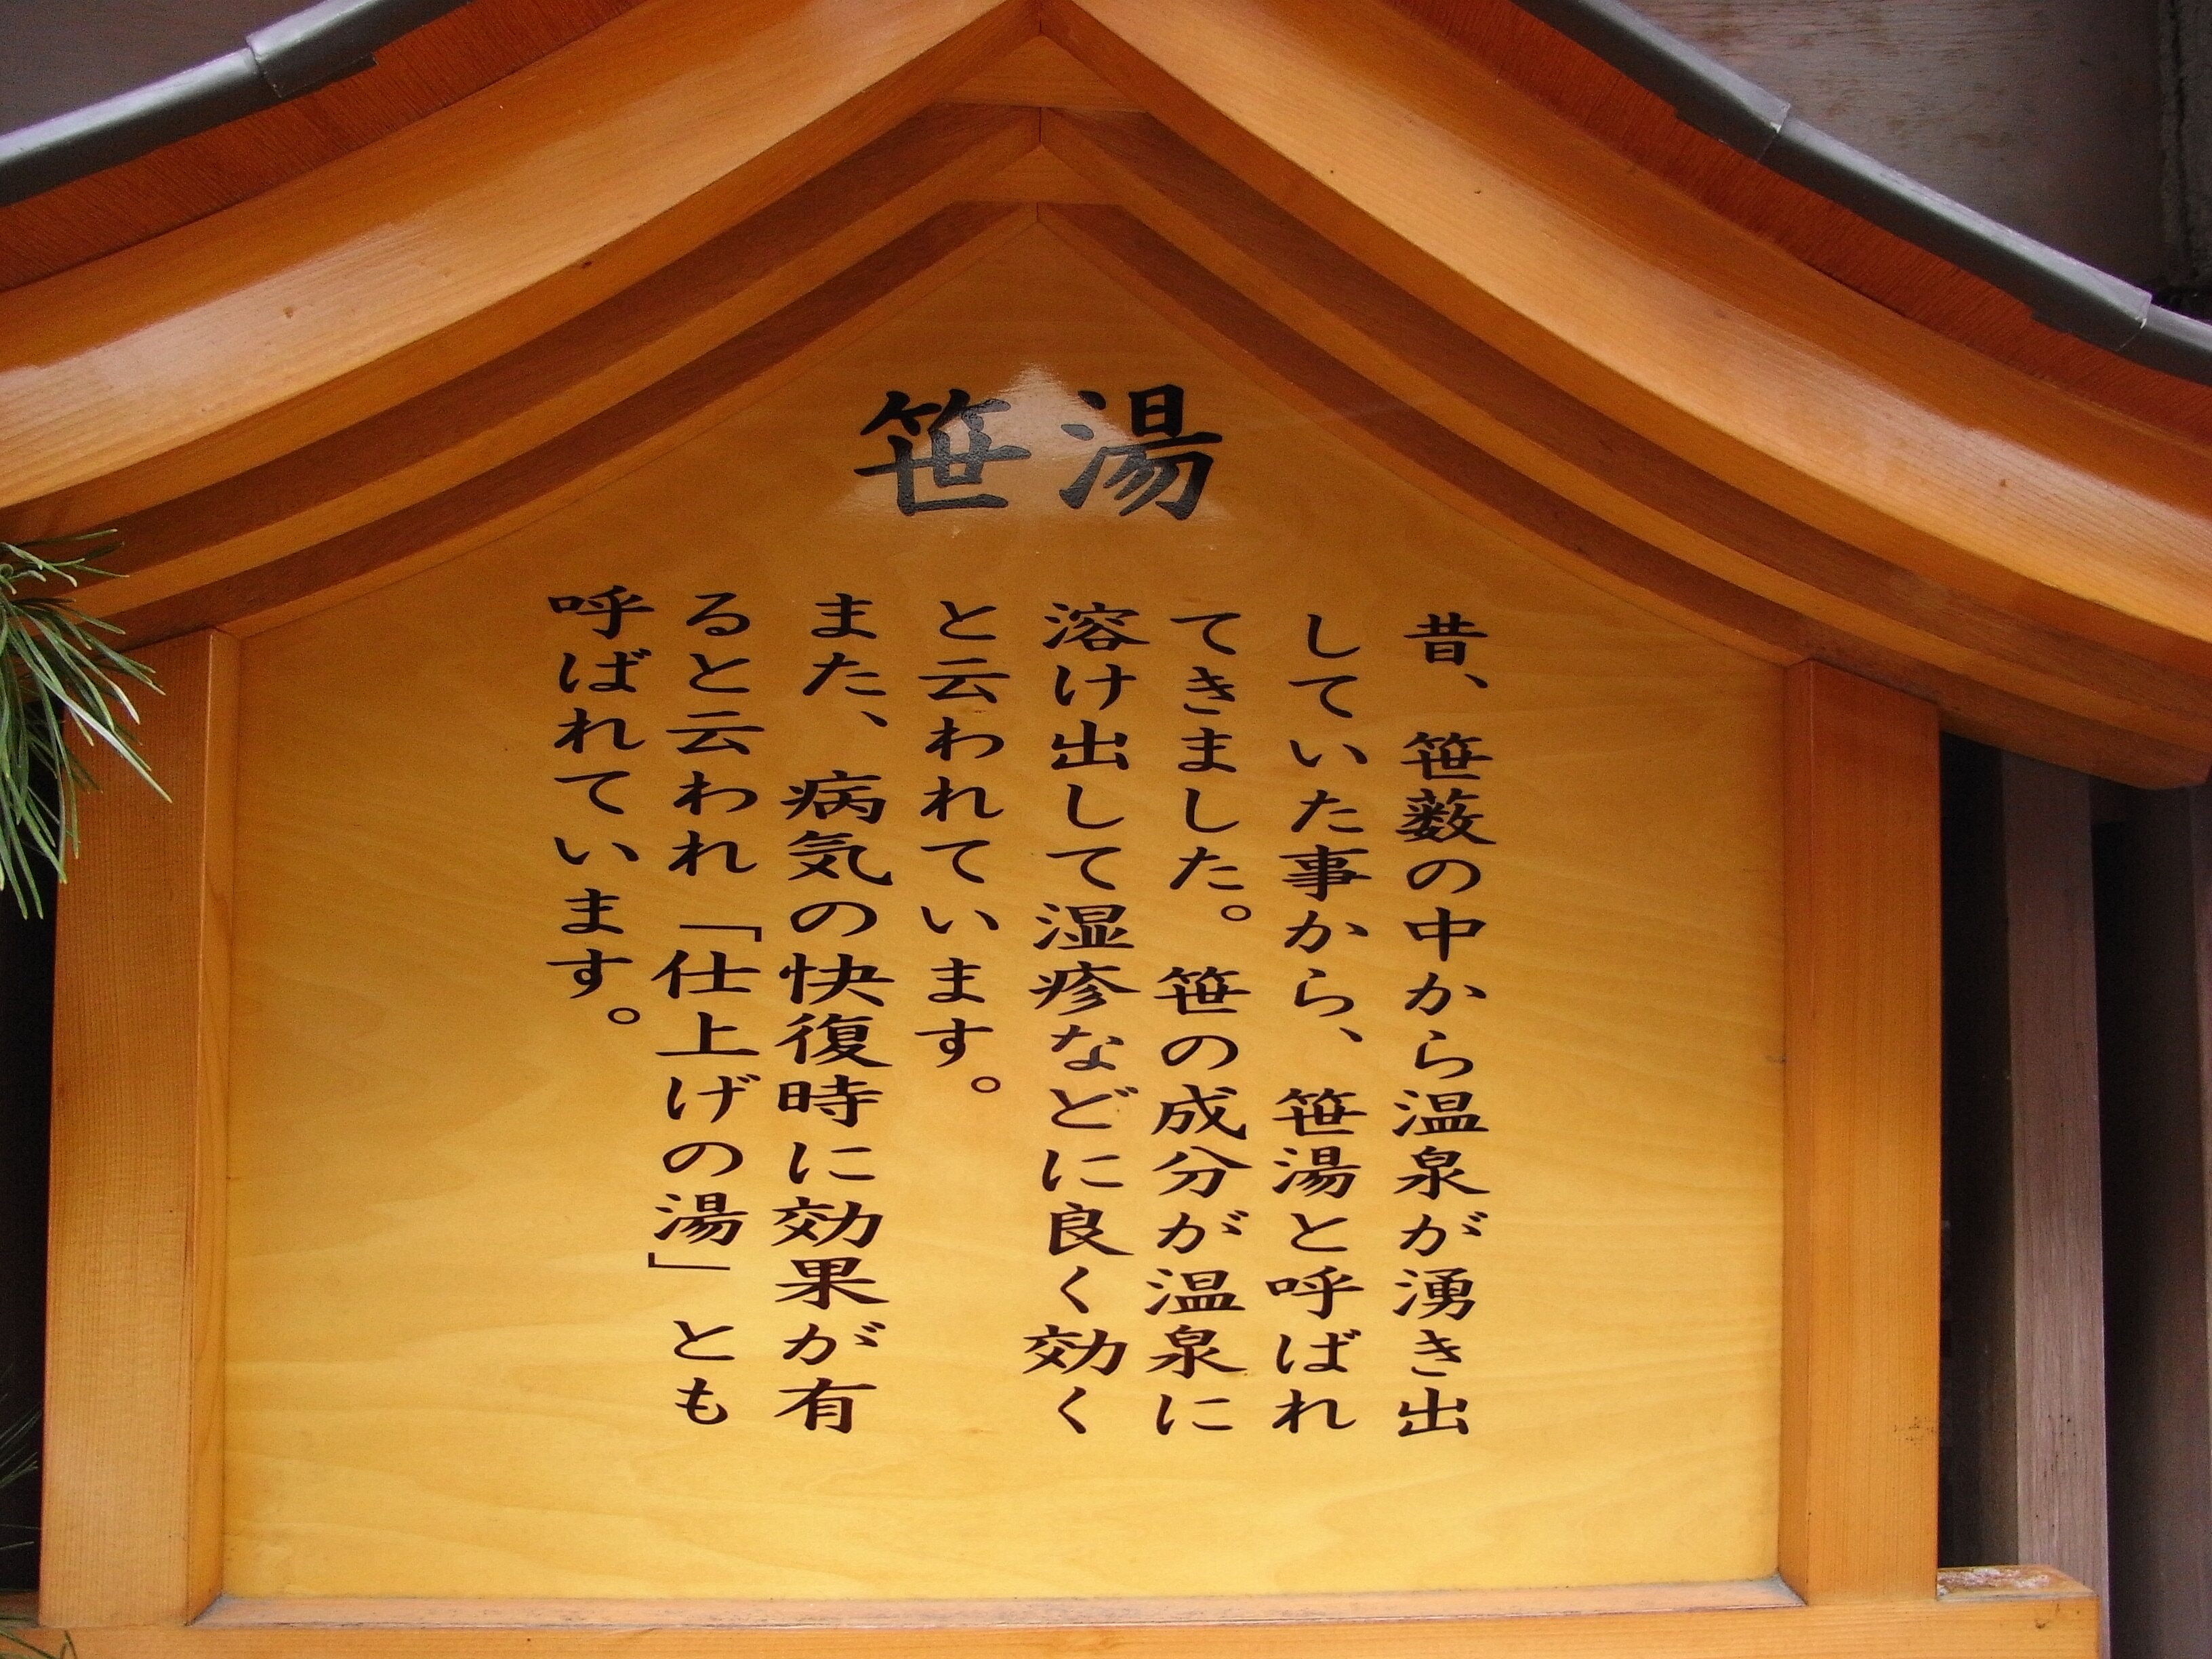 笹湯
昔、笹薮の中から温泉が湧き出
していた事から、笹湯と呼ばれ
てきました。笹の成分が温泉に
溶け出して湿疹などに良く効く
と云われています。
また、病気の快復時に効果が有
ると云われ「仕上げの湯」とも
呼ばれています。